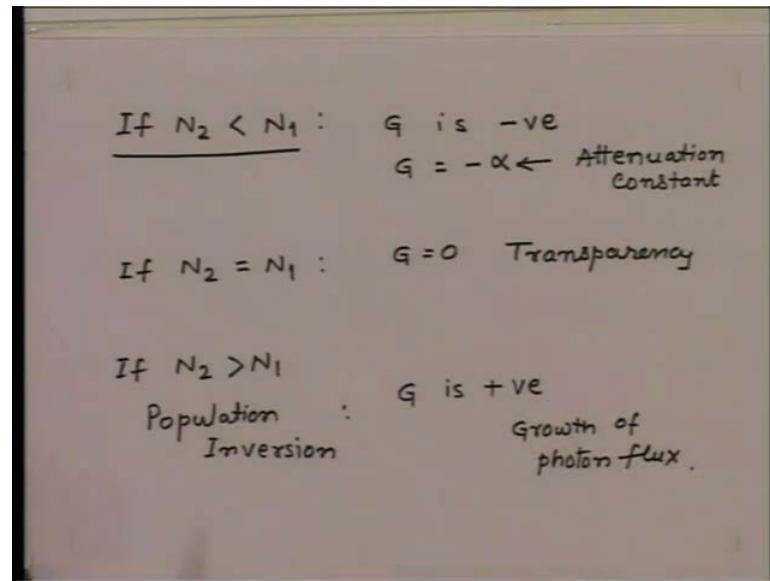 If N₂ < N₁ : G is -ve
G = -α ← Attenuation
Constant
If N₂ = N₁ : G=0 Transparency
If N₂ > N₁
: G is +ve
Population
Inversion
Growth of
photon flux.